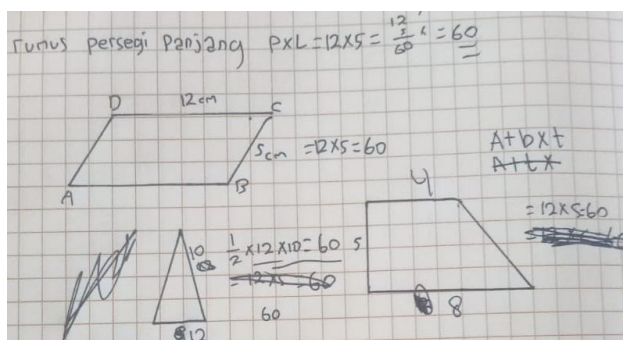 rumus persegi Panjang PxL = 12x5 = 12 5 x 60 = 60
D 12 cm C
5 cm = 12x5 = 60
A B
A+bxt
A+tx
4
= 12x5=60
10 1/2 x 12 x 10 = 60 5
= 12x5 = 60
60
12 8